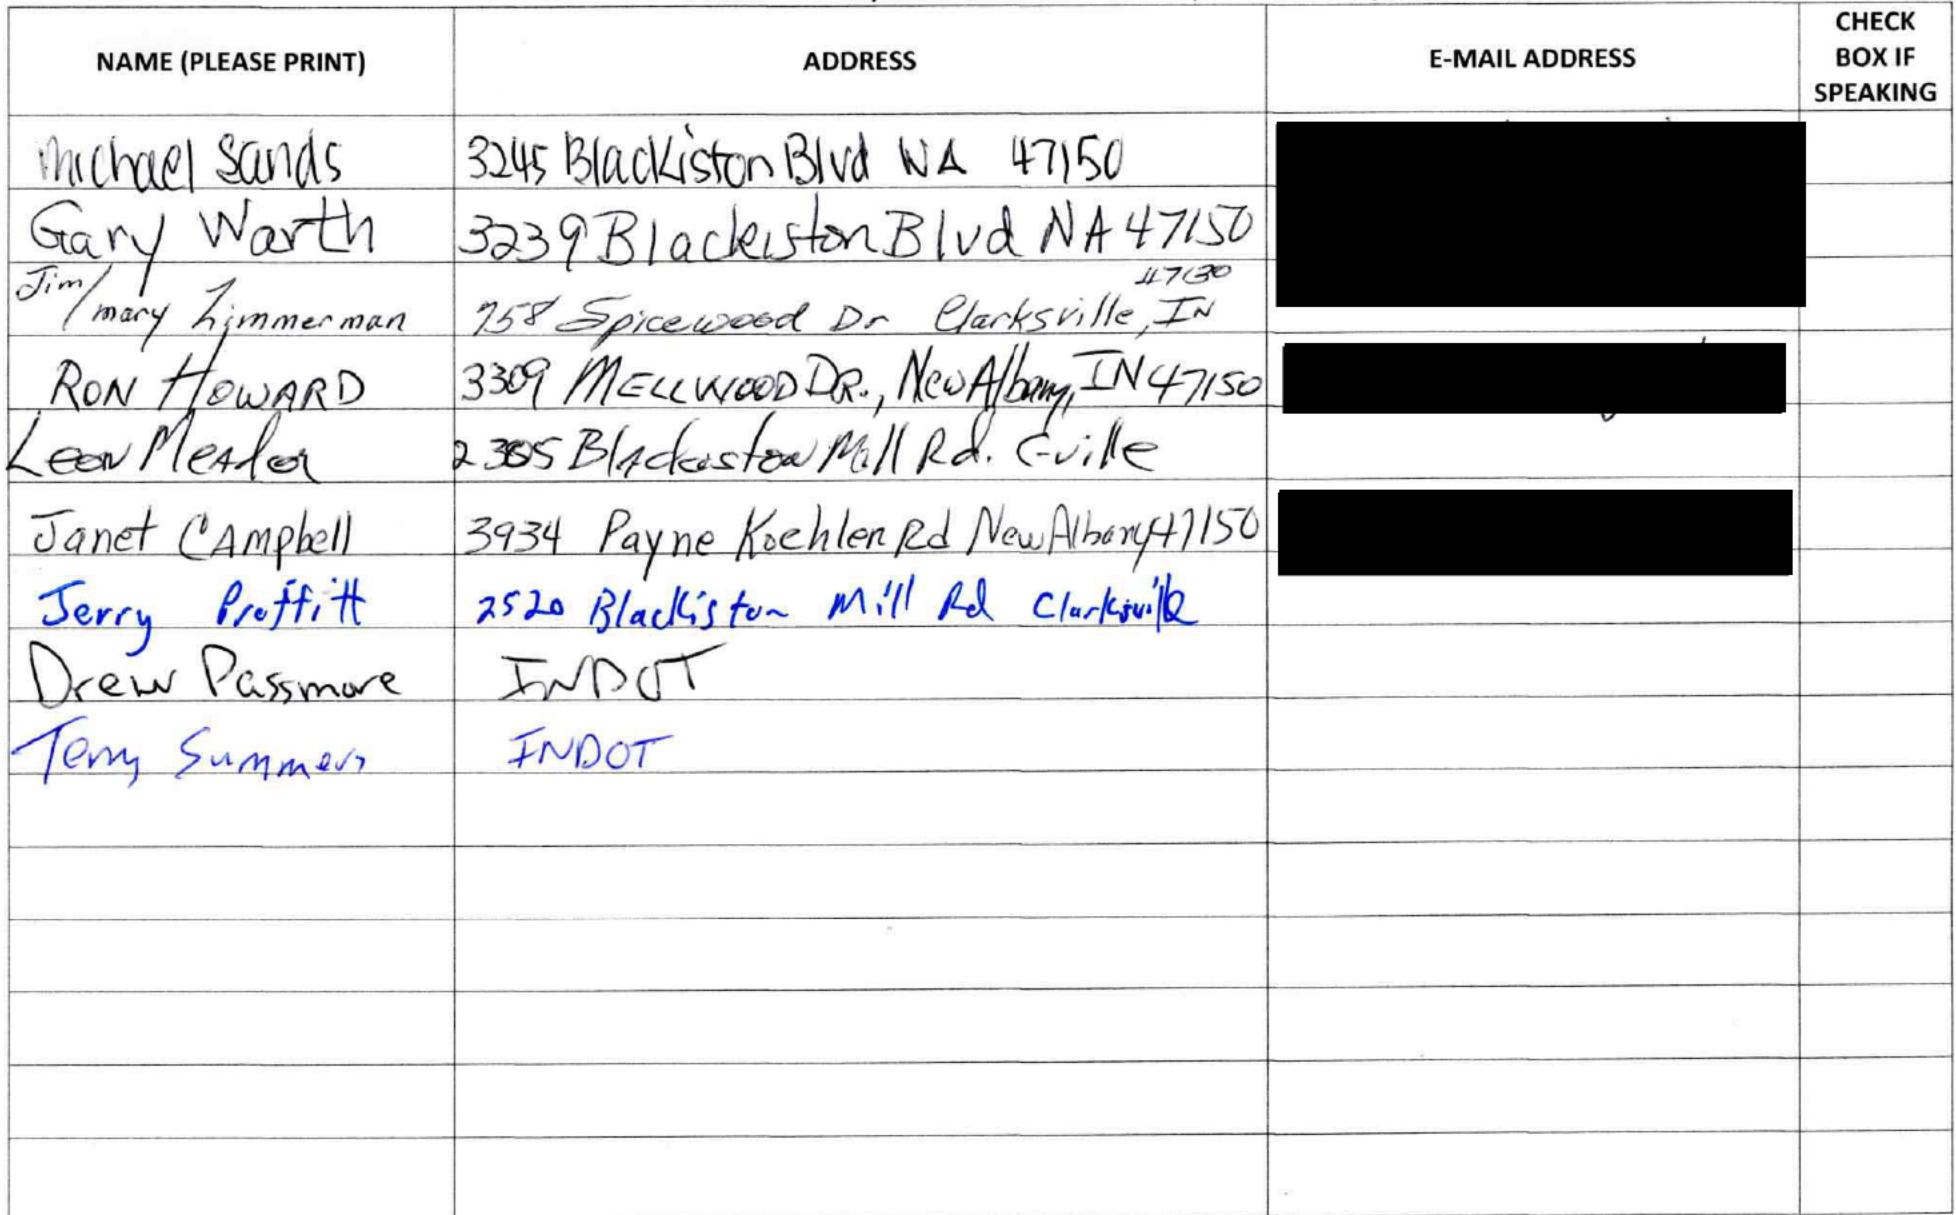 NAME (PLEASE PRINT) ADDRESS E-MAIL ADDRESS CHECK BOX IF SPEAKING
Michael Sands 3245 Blackiston Blvd NA 47150
Gary Warth 3239 Blackiston Blvd NA 47150
Jim/mary Zimmerman 758 Spicewood Dr Clarksville, IN 47130
RON HOWARD 3309 MELLWOOD DR., New Albany, IN 47150
Leon Meador 2305 Blackiston Mill Rd. C-ville
Janet CAMpbell 3934 Payne Koehler Rd New Albany 47150
Jerry Proffitt 2520 Blackiston Mill Rd Clarksville
Drew Passmore INDOT
Terry Summers INDOT